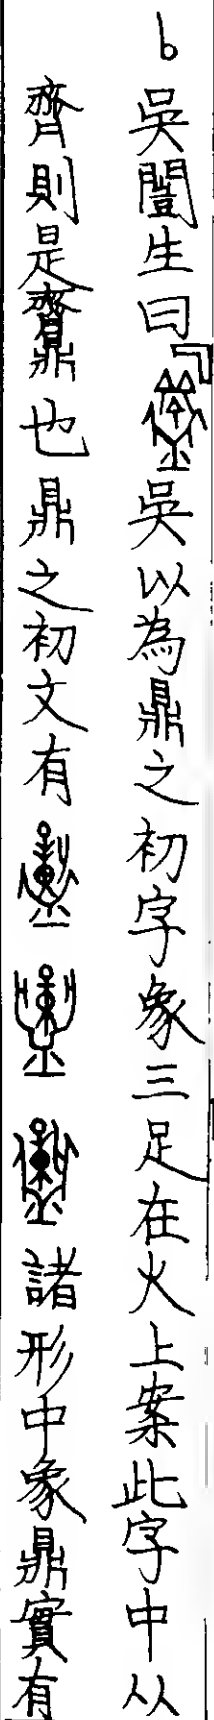 b吳闓生曰『吳以為鼎之初字象三足在火上案此字中从
齊則是齎鼎也鼎之初文有諸形中象鼎實有